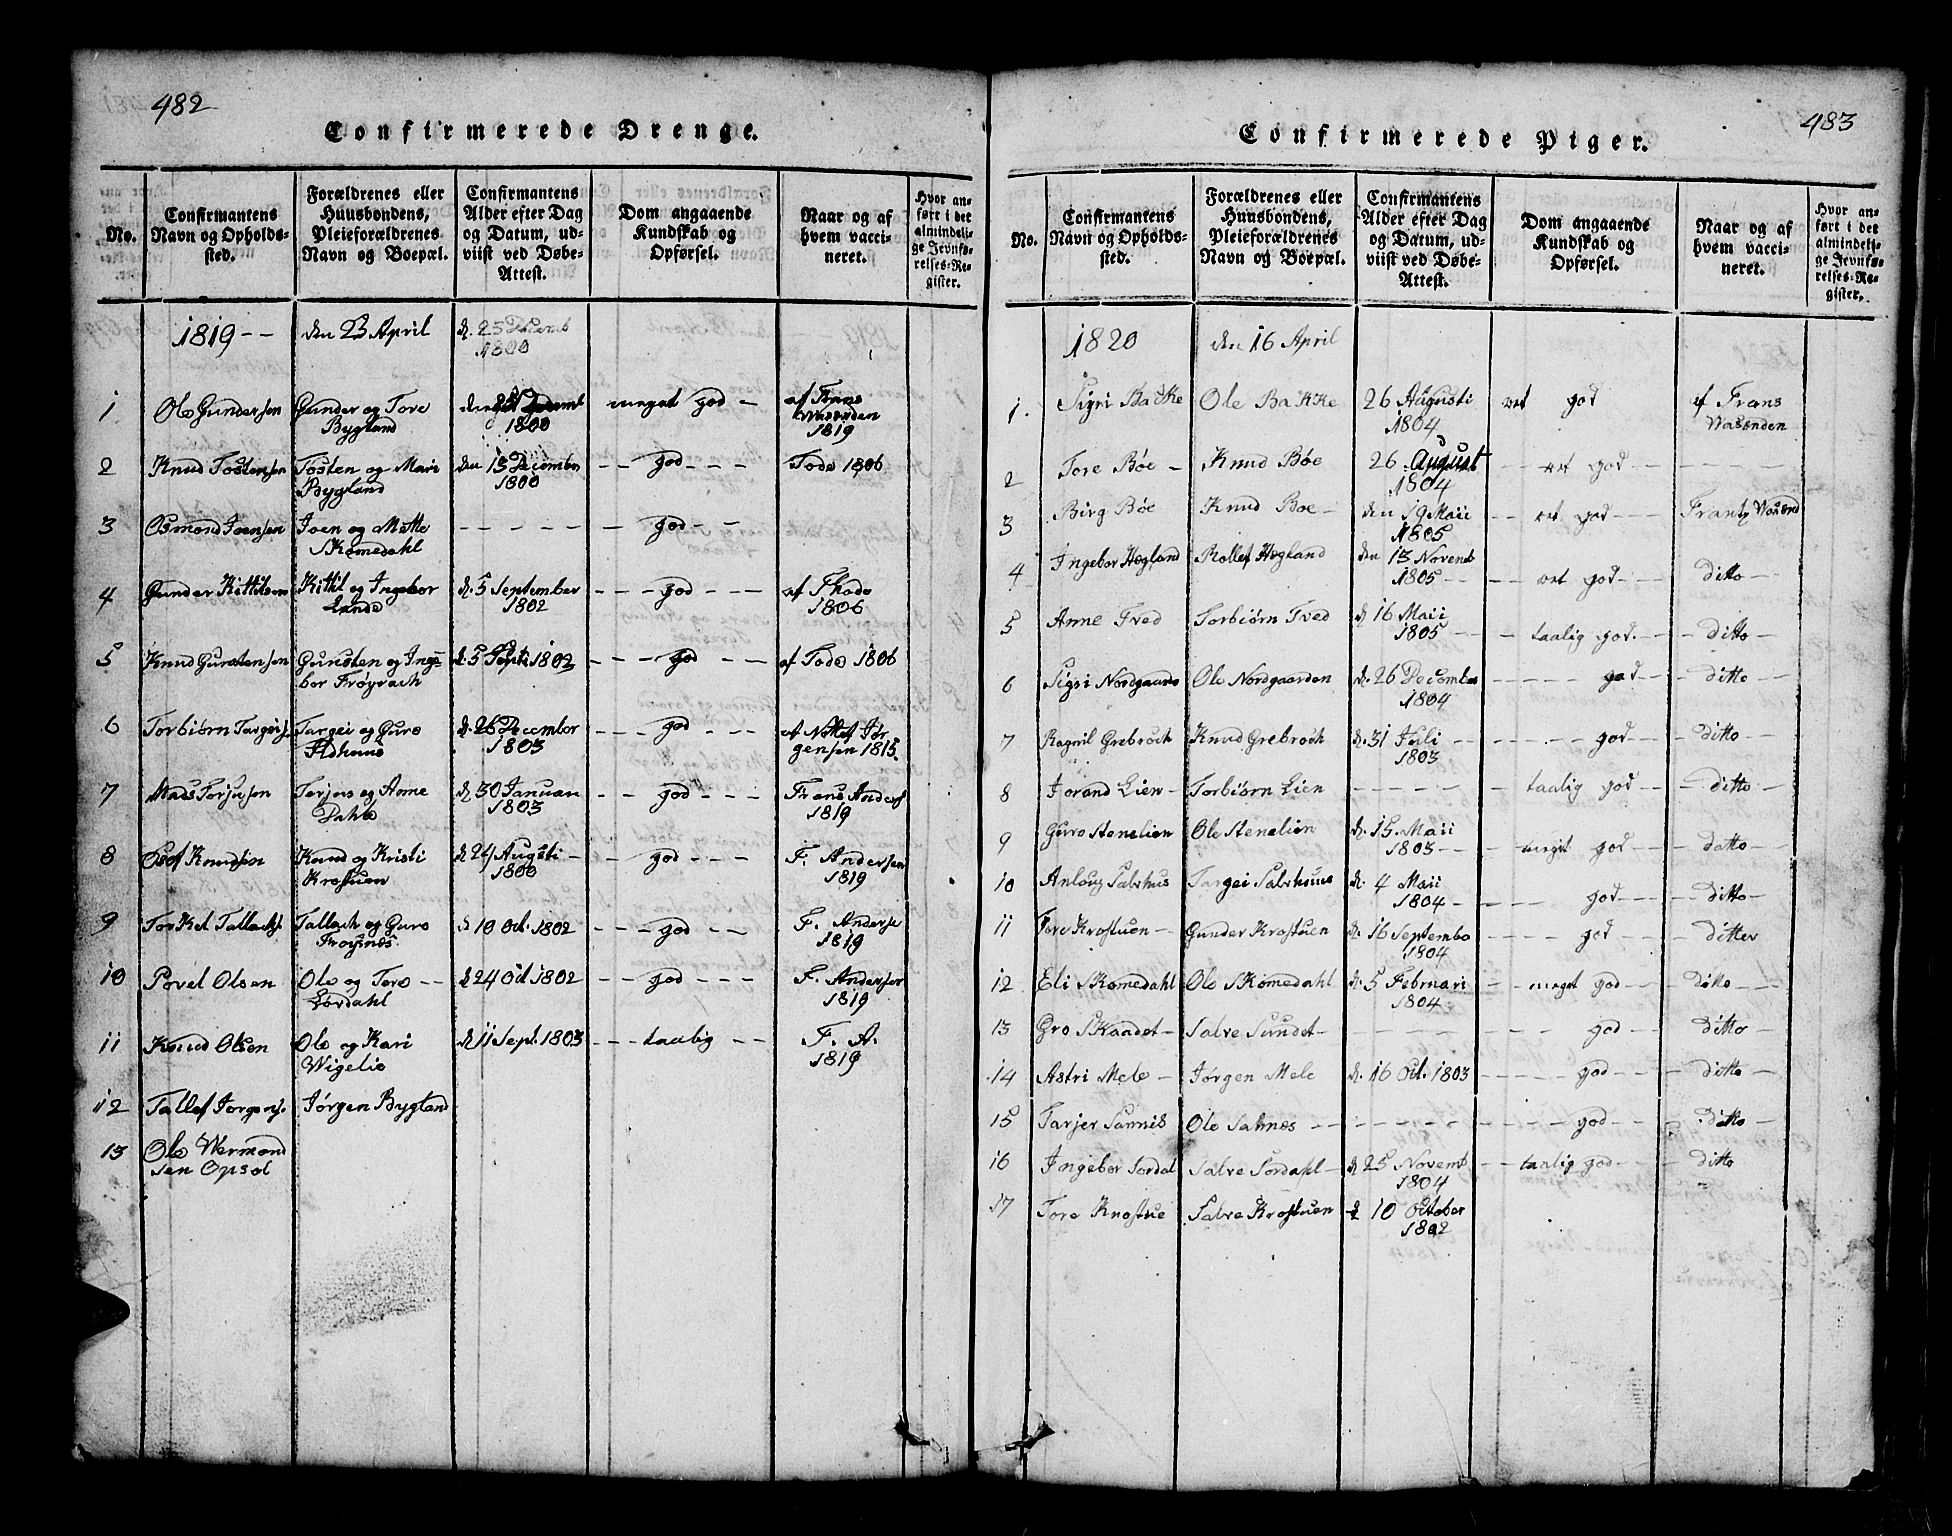 482
Confirmerede Drenge.
No.
Confirmantens
Navn og Opholds-
sted.
Forældrenes eller
Huusbondens,
Pleieforældrenes
Navn og Boepæl.
Confirmantens
Alder efter Dag
og Datum, ud-
viist ved Døbe-
Attest.
Dom angaaende
Kundskab og
Opførsel.
Naar og af
hvem vacci-
neret.
Hvor an-
ført i det
almindeli-
ge Jevnfø-
relses-Re-
gister.
1819 -- den 23 April d. 25 Decemb
1800
1 Ole Gundersen Gunder og Tore
Bygland
1800
meget god - af Frans
Wasenden
1819
2 Knud Tostensen Tosten og Mari
Bygland
den 13 December
1800
-- god --- Tode 1806
3 Osmond Joensen Joen og Mette
Skomedahl
------ - god ---
4 Gunder Kittilsen Kittil og Ingebor
Lande
d. 5 September
1802
--- god --- af Thode
1806
5 Knud Gunstensen Gunsten og Inge-
bor Frøyrach
d. 5 Sept. 1802 --- god --- af Tode 1806
6 Torbiørn Targeis. Targei og Guro
d. 26 December
1803
--- god --- af Nottef Jør
gensen 1815.
7 Mads Torjusen Torjus og Anne
Dahle
d. 30 Januari
1803
-- god --- Frans Anders
1819
8 Osof Knudsen Knud og Kristi
Krostuen
d. 24 Augsti -
1800
-- god --- F. Andersen
1819
9 Torkel Tallachs. Tallach og Guro
Froysnes
d 10 Oct. 1802 -- god -- F. Anderse
1819
10 Povel Olsen Ole og Tore --
Lordahl
d 24 Oct 1802 -- god --- F. Andersen
1819
11 Knud Olsen Ole og Kari
Wigelie
d 11 Sept. 1803 -- taalig -- F. A.
1819
12 Tallef Jorgens. Jørgen Bygland
13 Ole Wermond
sen Opsal
483
Confirmerede Piger.
No.
Confirmantens
Navn og Opholds-
sted.
Forældrenes eller
Huusbondens,
Pleieforældrenes
Navn og Boepæl.
Confirmantens
Alder efter Dag
og Datum, ud-
viist ved Døbe-
Attest.
Dom angaaende
Kundskab og
Opførsel.
Naar og af
hvem vacci-
neret.
Hvor an-
ført i det
almindeli-
ge Jevnfø-
relses-Re-
gister.
1820 den 16 April
1. Sigri Bakke Ole Bakke 26 Augusti
1804
ret god af Frans
Wasenden
2 Tore Bøe - Knud Bøe 26 August
1804
-- ret god -- -----
3 Birg Bøe Knud Boe - den 19 Maii
1805
-- ret god --- Frantz Wasend
4 Ingebor Hægland Rollef Hægland den 13 Novemb
1805 --
-- ret god --- ditto --
5 Anne Tved Torbiørn Tved d 16 Maii
1805 --
- taalig god. -- - ditto -
6 Sigri Nordgaard Ole Nordgaarden d. 26 December
1804
----- god -- - ditto
7 Ragnil Grebroch Knud Grebroch d. 31 Juli --
1803
----- god -- - ditto -
8 Jorand Lien - Torbiørn Lien ----- - taalig god -- - ditto -
9 Guro Stenelien Ole Stenelien d. 15. Maii
1803 --
- meget god -- ditto --
10 Anloug Salehus Targei Salehuus d. 4 Maii
1804 -
---- god --- ditto -
11 Tore Krostuen - Gunder Krostuen d. 16 Septembe
1804
---- god -- - ditto
12 Eli Skomedahl Ole Skomedahl d. 5 Februari
1804
-- meget god -- ditto ---
13 Gro Skaadet - Salve Sundet - ------ ---- god -- ditto -
14 Astri Mele - Jørgen Mele d. 16 Oct. 1803 ---- god --- ditto -
15 Tarjer Samnes Ole Samnes ------ ---- god --- ditto
16 Ingebor Sordal Salve Sordahl - d 25 Novemb
1804
-- taalig god --- ditto
17 Tore Krostue Salve Krostuen d 10 October
1802